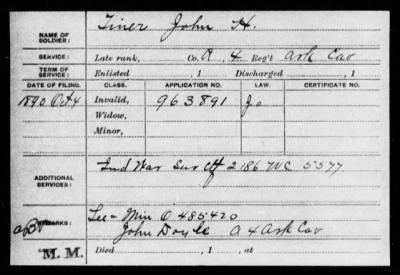 NAME OF SOLDIER: Tiner John H.
SERVICE: Late rank, Co. A, 4 Reg't Ark Cav
TERM OF SERVICE: Enlisted , 1 Discharged , 1
DATE OF FILING. CLASS. APPLICATION NO. LAW. CERTIFICATE NO.
1890 Oct 4 Invalid, 963891
Widow,
Minor,
ADDITIONAL SERVICES: Ind War Sur Ctf 2186 5577
REMARKS: See = Min O 485420
John Doyle A 4 Ark Cav
M. M. Died , 1 , at